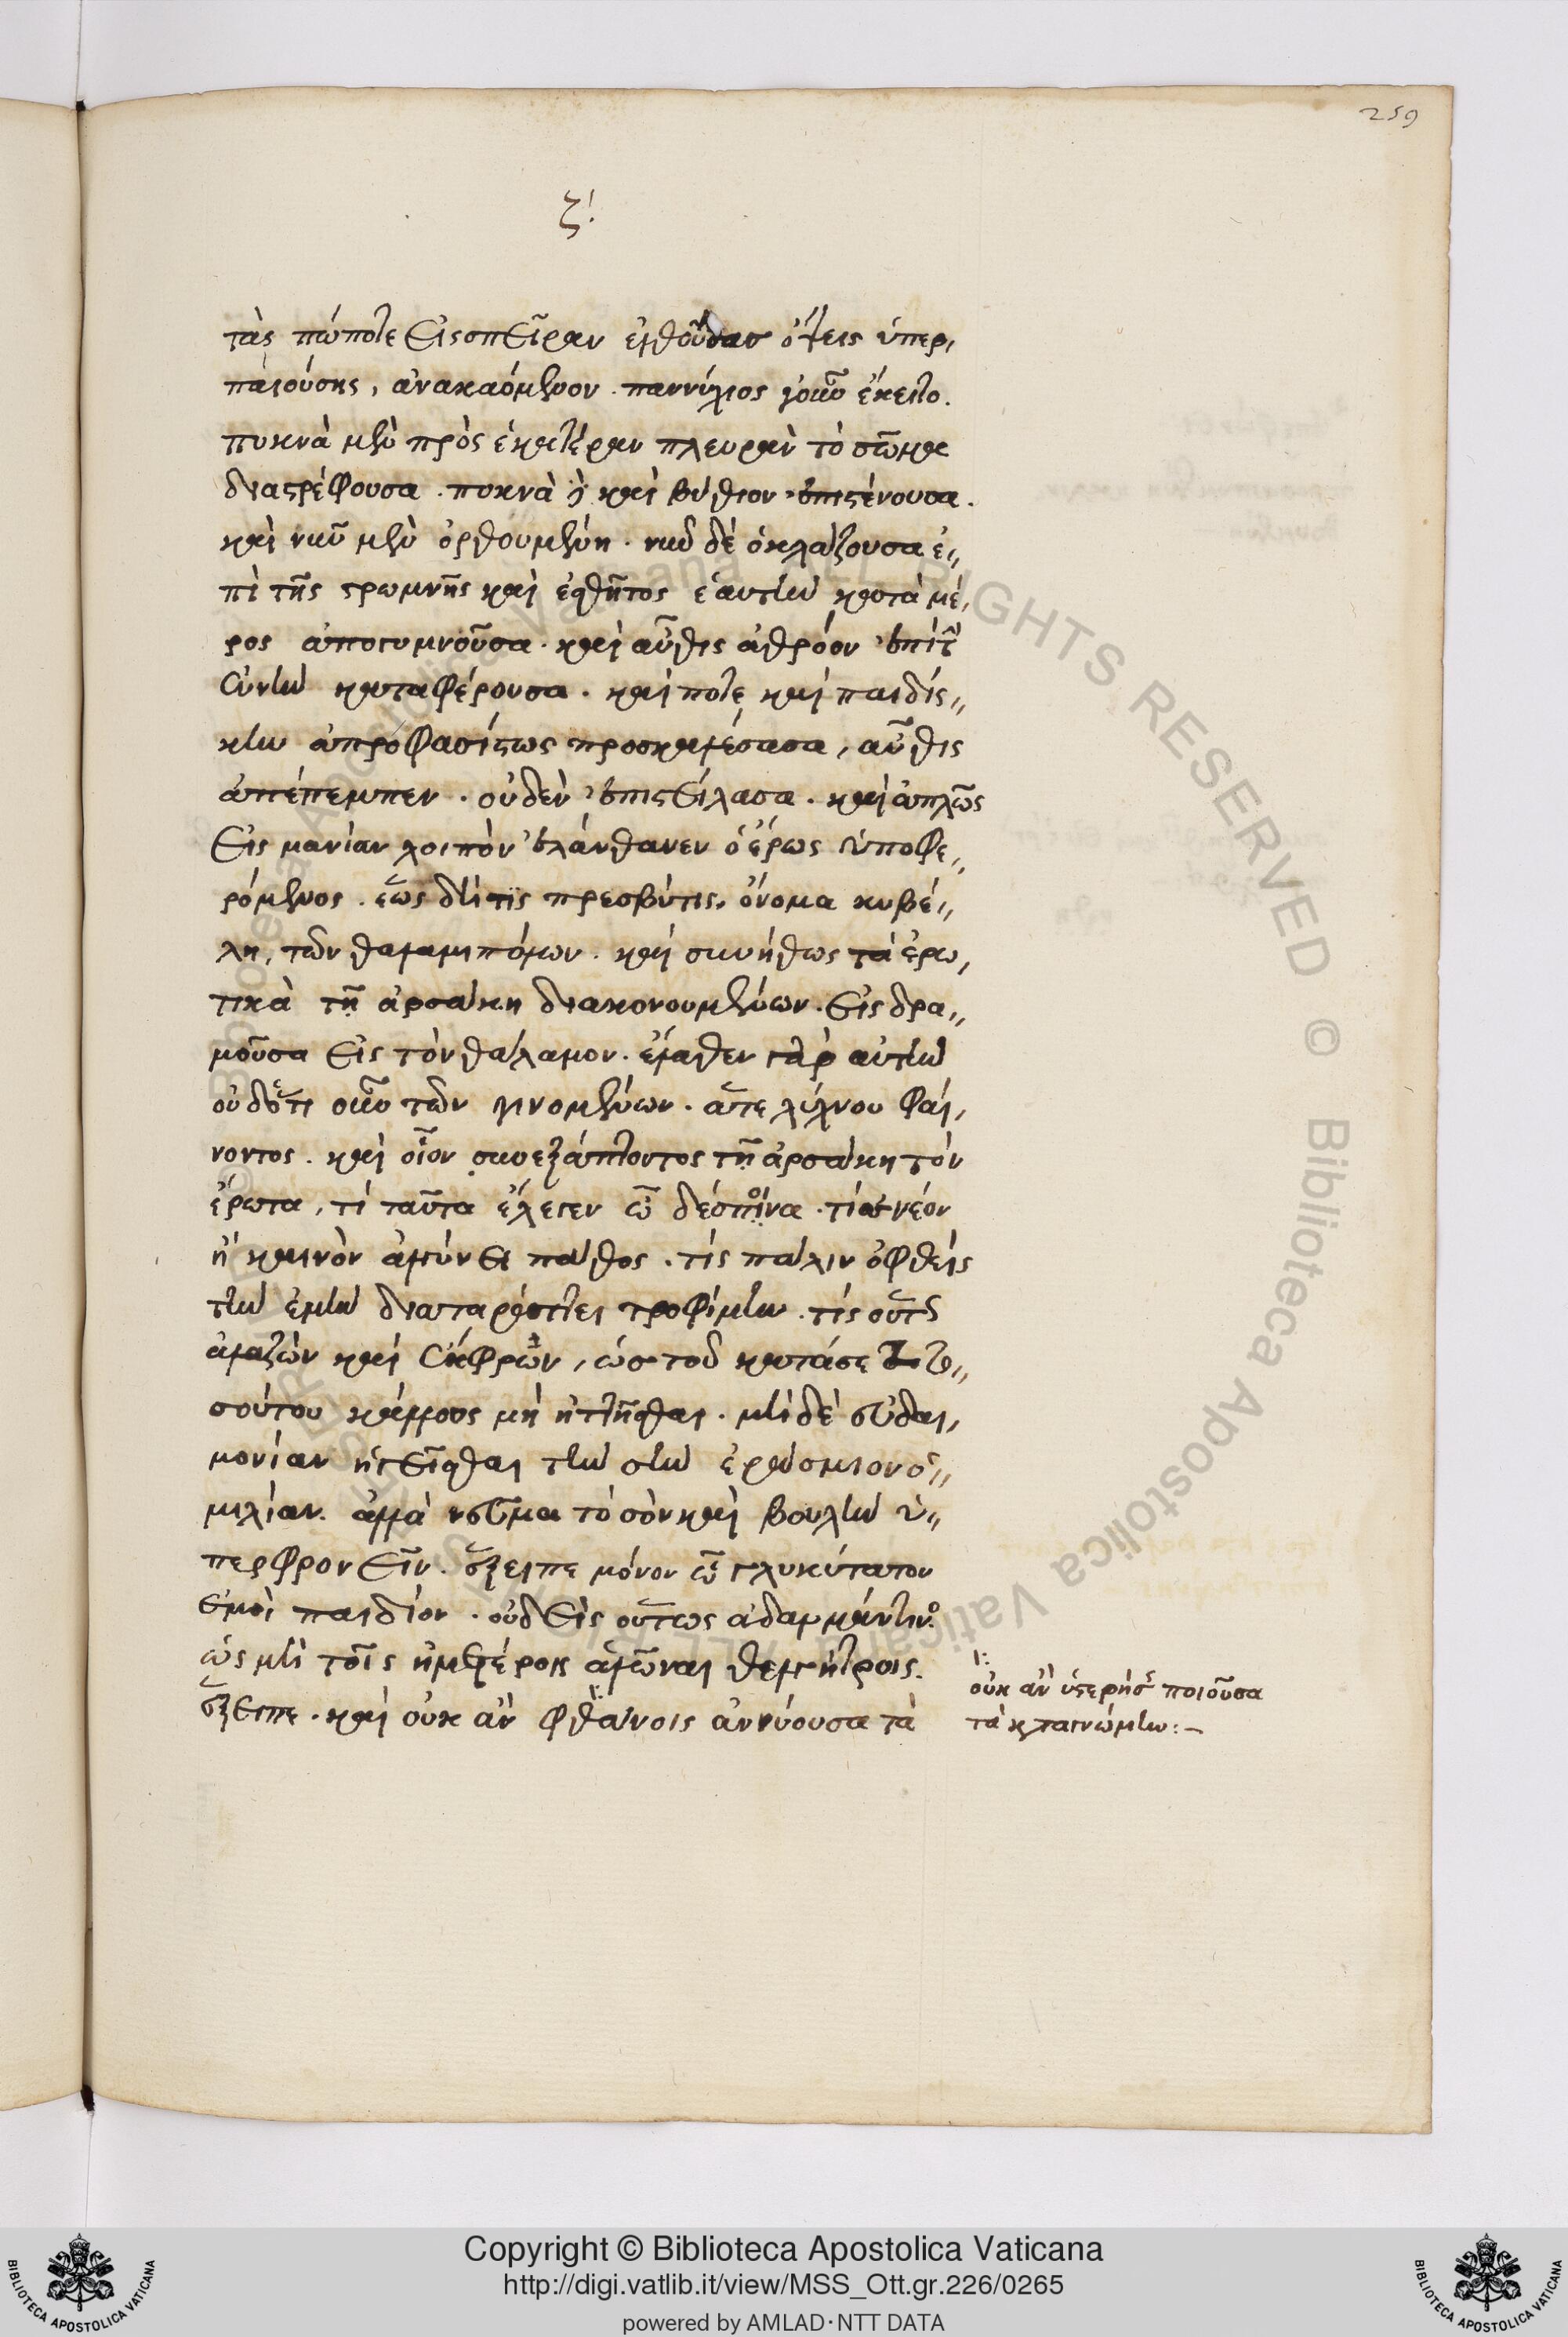 259
ζ'.
τὰς πώποτε εἰς πεῖραν ἐλθούσας ὄψεις ὑπερ-
παιούσης, ἀνακαόμενον. παννύχιος γοῦν ἔκειτο.
πυκνὰ μὲν πρὸς ἑκατέραν πλευρὰν τὸ σῶμα
διαστρέφουσα. πυκνὰ δὲ καὶ βύθιον ἐπιστένουσα.
καὶ νῦν μὲν ὀρθουμένη. νῦν δὲ ὀκλάζουσα ἐ-
πὶ τῆς στρωμνῆς καὶ ἐσθῆτος ἑαυτὴν κατὰ μέ-
ρος ἀπογυμνοῦσα. καὶ αὖθις ἀθρόον ἐπὶ τὴν
εὐνὴν καταφέρουσα. καί ποτε καὶ παιδίσ-
κην ἀπροφασίστως προσκαλέσασα, αὖθις
ἀπέπεμπεν. οὐδὲν ἐπιστείλασα. καὶ ἁπλῶς
εἰς μανίαν λοιπὸν ἐλάνθανεν ὁ ἔρως ὑποφε-
ρόμενος. ἕως δή τις πρεσβύτις, ὄνομα κυβέ-
λη, τῶν θαλαμηπόλων. καὶ συνήθως τὰ ἐρω-
τικὰ τῇ ἀρσάκῃ διακονουμένων. εἰσδρα-
μοῦσα εἰς τὸν θάλαμον. ἔλαθεν γὰρ αὐτὴν
οὐδέτι οὖν τῶν γινομένων. ἅτε λύχνου φαί-
νοντος. καὶ οἷον συνεξάπτοντος τῇ ἀρσάκῃ τὸν
ἔρωτα, τί ταῦτα ἔλεγεν ὦ δέσποινα. τί σε νέον
ἢ καινὸν ἀλγύνει πάθος. τίς πάλιν ὀφθεὶς
τὴν ἐμὴν διαταράττει τροφίμην. τίς οὕτως
ἀλαζὼν καὶ ἔκφρων, ὡς τοῦ κατὰ σὲ το-
σούτου κάλλους μὴ ἡττῆσθαι. μὴ δὲ εὐδαι-
μονίαν ἡγεῖσθαι τὴν σὴν ἐράσμιον ὁ-
μιλίαν. ἀλλὰ νεῦμα τὸ σὸν καὶ βουλὴν ὑ-
περφρονεῖν. ἔξειπε μόνον ὦ γλυκύτατον
ἐμοὶ παιδίον. οὐδεὶς οὕτως ἀδαμάντινος
ὡς μὴ τοῖς ἡμετέροις ἁλῶναι θελγήτροις.
ἔξειπε. καὶ οὐκ ἂν φθάνοις ἀννύουσα τὰ
οὐκ ἂν ὑστερήσεις ποιοῦσα
τὰ κατὰ γνώμην:-
Copyright © Biblioteca Apostolica Vaticana
http://digi.vatlib.it/view/MSS_Ott.gr.226/0265
powered by AMLAD·NTT DATA
BIBLIOTECA APOSTOLICA VATICANA
BIBLIOTECA APOSTOLICA VATICANA
© Biblioteca Apostolica Vaticana ALL RIGHTS RESERVED